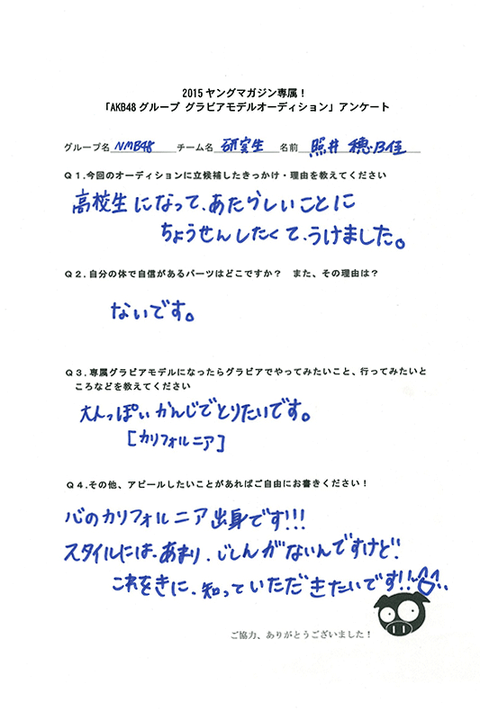 2015ヤングマガジン専属!
「AKB48グループ グラビアモデルオーディション」アンケート
グループ名 NMB48 チーム名 研究生 名前 照井 穂乃佳
Q1.今回のオーディションに立候補したきっかけ・理由を教えてください
高校生になって、あたらしいことに
ちょうせんしたくて、うけました。
Q2.自分の体で自信があるパーツはどこですか? また、その理由は?
ないです。
Q3.専属グラビアモデルになったらグラビアでやってみたいこと、行ってみたいと
ころなどを教えてください
大人っぽいかんじでとりたいです。
[カリフォルニア]
Q4.その他、アピールしたいことがあればご自由にお書きください!
心のカリフォルニア出身です!!!
スタイルには、あまり、じしんがないんですけど!
これをきに、知っていただきたいです!!
ご協力、ありがとうございました!